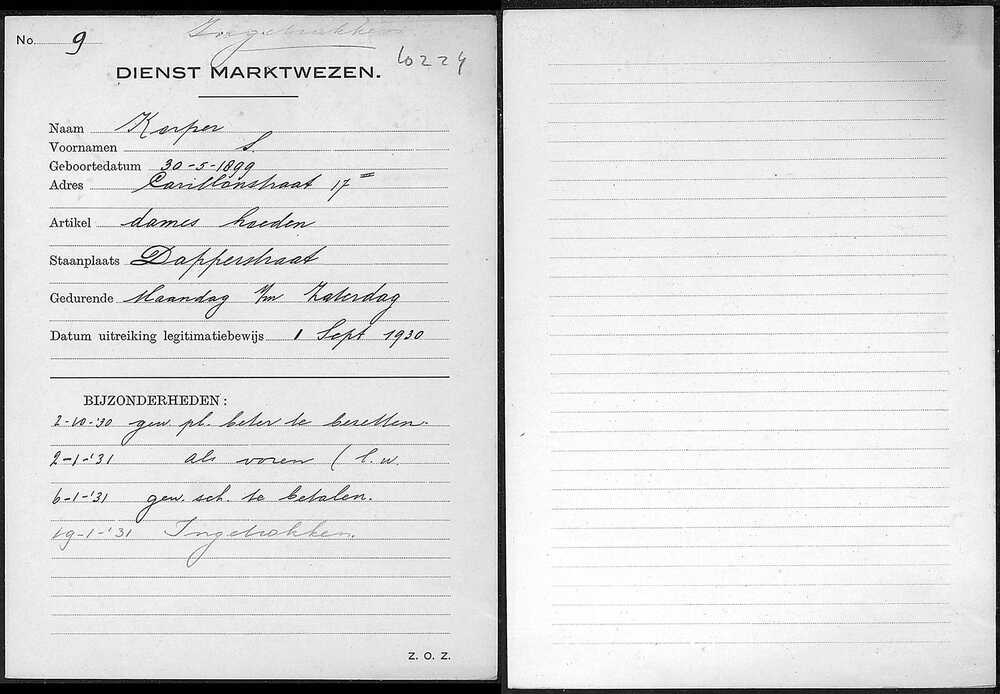 Ingetrokken
No. 9
10224
DIENST MARKTWEZEN.
Naam Korper
Voornamen S.
Geboortedatum 30-5-1899
Adres Carillonstraat 17 II
Artikel dames hoeden
Staanplaats Dapperstraat
Gedurende Maandag t/m Zaterdag
Datum uitreiking legitimatiebewijs 1 Sept 1930
BIJZONDERHEDEN:
2-10-'30 gew. pl. beter te bezetten.
2-1-'31 als voren (l.w.
6-1-'31 gew. sch. te betalen.
19-1-'31 Ingetrokken.
Z. O. Z.